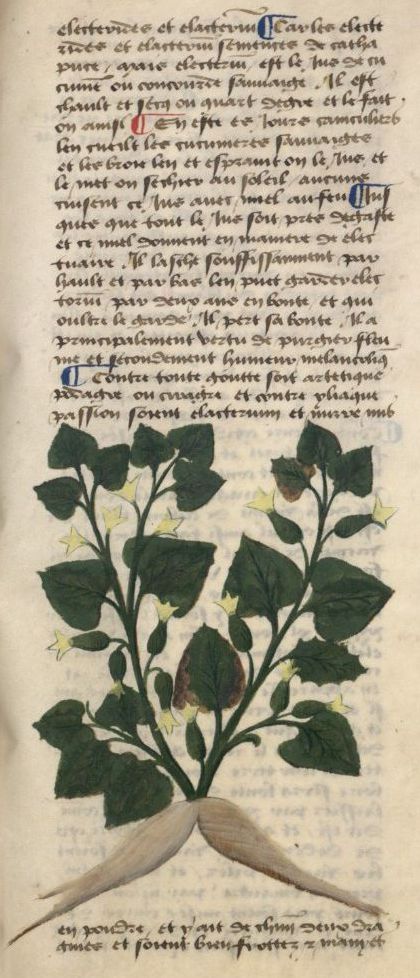 electerides et elacteriū Car les electe
rides et elacteriū semences de catha
puce / mais electeriū est le Jus de cu
cumē ou concourde sauuaige / Il est
chault et secq ou quart degre et le fait
on ainsi En este es Jours caniculiers
len cueilt les cucumeres sauuaiges
et les broie len et espraint on le Jus et
le met on sechier au soleil / aucuns
cuisent ce Jus auec miel au feu Jus
ques que tout le Jus soit pres degaste
et ce miel donnent en maniere de elec
tuaire / Il lasche souffissamment par
hault et par bas len puet garder elec
toriū par deux ans en bonte et qui
oultre le garde / Il pert sa bonte / Il a
principalement vertu de purgier fleu
me et secondement humeur melancoliq
Contre toute goutte soit artetique
podagre ou ciragre et contre yliaque
passion soient elacterium et mirre mis
en pouldre / et y ait de deux dra
gmes et soient bien frottez